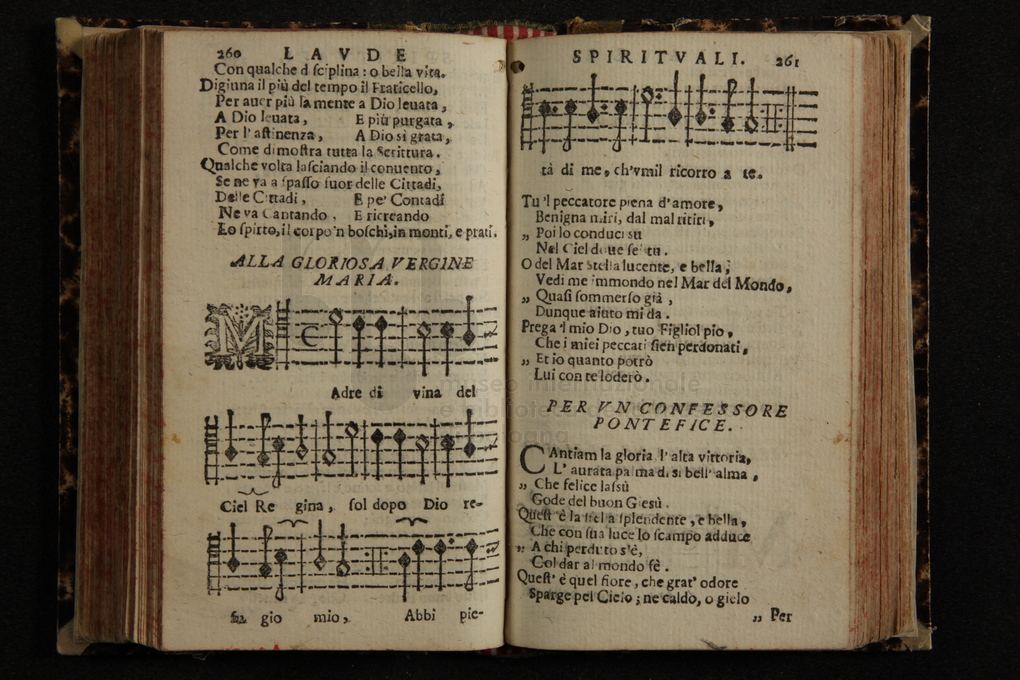 260 LAVDE
Con qualche d sciplina : o bella vita.
Digiuna il più del tempo il Fraticello,
Per auer più la mente a Dio leuata,
A Dio leuata, E più purgata,
Per l'astinenza, A Dio sì grata,
Come dimostra tutta la Scrittura.
Qualche volta lasciando il conuento,
Se ne va a spasso fuor delle Cittadi,
Delle Cittadi, E pe' Contadi
Ne va Cantando, E ricreando
Lo spirto, il corpo 'n boschi, in monti, e prati.
ALLA GLORIOSA VERGINE
MARIA.
MAdre di vina del
Ciel Re gina, sol dopo Dio re-
fu gio mio, Abbi pie-
SPIRITVALI. 261
tà di me, ch'vmil ricorro a te.
Tu 'l peccatore piena d'amore,
Benigna miri, dal mal ritiri,
„ Poi lo conduci su
Nel Ciel doue se' tu.
O del Mar Stella lucente, e bella;
Vedi me immondo nel Mar del Mondo,
„ Quasi sommerso già,
Dunque aiuto mi da.
Prega 'l mio Dio, tuo Figliol pio,
Che i miei peccati sien perdonati,
„ Et io quanto potrò
Lui con te loderò.
PER VN CONFESSORE
PONTEFICE.
CAntiam la gloria, l'alta vittoria,
L'aurata palma di si bell'alma,
„ Che felice lassù
Gode del buon Giesù.
Quest' è la stella splendente, e bella,
Che con sua luce lo scampo adduce
„ A chi perduto s'è,
Col dar al mondo fè.
Quest' è quel fiore, che grat' odore
Sparge pel Cielo; ne caldo, o gielo
„ Per
museo internazionale
e biblioteca